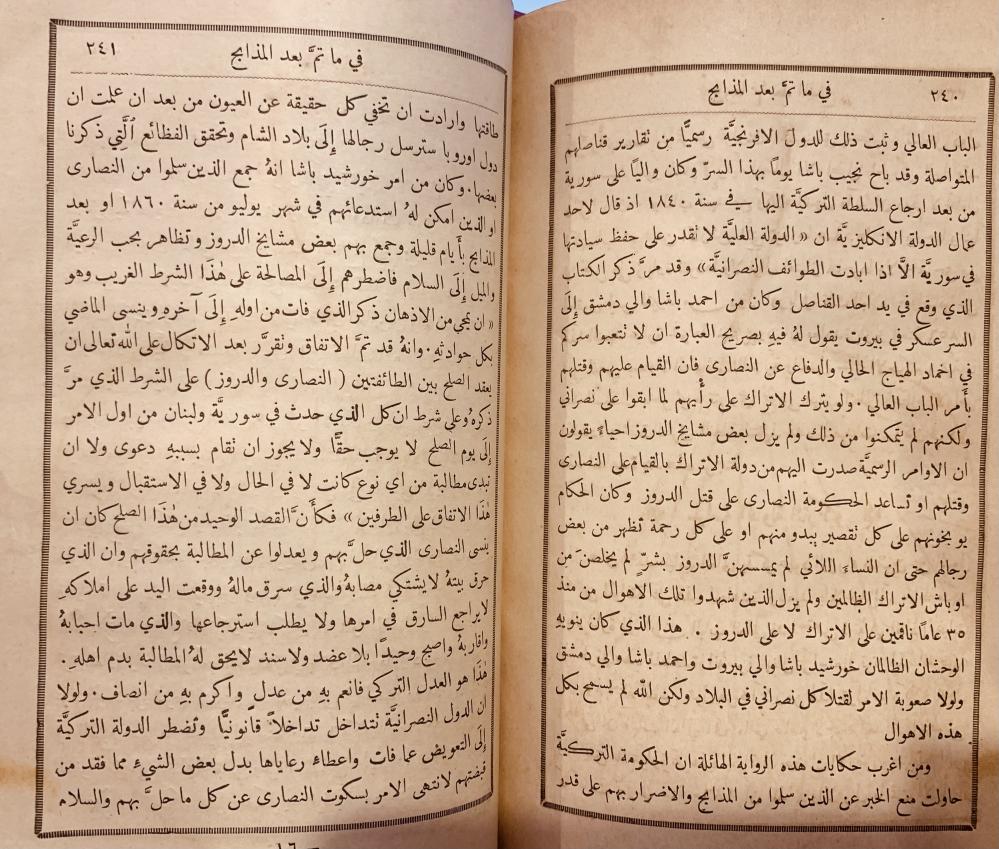 ٢٤٠ في ما تمَّ بعد المذابح
الباب العالي وثبت ذلك للدول الافرنجيَّة رسميًّا من نقارير قناصلهم
المتواصلة وقد باح نجيب باشا يومًا بهذا السرّ وكان واليًا على سورية
من بعد ارجاع السلطة التركيَّة اليها في سنة ١٨٤٠ اذ قال لاحد
عمال الدولة الانكليزيَّة ان «الدولة العليَّة لا نقدر على حفظ سيادتها
في سوريَّة الاَّ اذا ابادت الطوائف النصرانيَّة» وقد مرَّ ذكر الكتاب
الذي وقع في يد احد القناصل وكان من احمد باشا والي دمشق إِلَى
السر عسكر في بيروت يقول لهُ فيهِ بصريح العبارة ان لا نتعبوا سركم
في اخماد الهياج الحالي والدفاع عن النصارى فان القيام عليهم وقتلهم
بأَمر الباب العالي . ولو يترك الاتراك على رأْيهم لما ابقوا على نصراني
ولكنهم لم يتمكنوا من ذلك ولم يزل بعض مشايخ الدروز احياءً يقولون
ان الاوامر الرسميَّة صدرت اليهم من دولة الاتراك بالقيام على النصارى
وقتلهم او تساعد الحكومة النصارى على قتل الدروز وكان الحكام
يوبخونهم على كل نقصير يبدو منهم او على كل رحمة تظهر من بعض
رجالهم حتى ان النساءَ اللائي لم يمسسهنَّ الدروز بشرّ لم يخلصنَ من
اوباش الاتراك الظالمين ولم يزل الذين شهدوا تلك الاهوال من منذ
٣٥ عامًا ناقمين على الاتراك لا على الدروز . هذا الذي كان ينويهِ
الوحشان الظالمان خورشيد باشا والي بيروت واحمد باشا والي دمشق
ولولا صعوبة الامر لقتلا كل نصراني في البلاد ولكن الله لم يسمح بكل
هذه الاهوال
ومن اغرب حكايات هذه الرواية الهائلة ان الحكومة التركيَّة
حاولت منع الخبر عن الذين سلموا من المذابح والاضرار بهم على قدر
في ما تمَّ بعد المذابح ٢٤١
طاقتها وارادت ان تخفي كل حقيقة عن العيون من بعد ان علمت ان
دول اوروبا سترسل رجالها إِلَى بلاد الشام وتحقق الفظائع الَّتي ذكرنا
بعضها . وكان من امر خورشيد باشا انهُ جمع الذين سلموا من النصارى
او الذين امكن لهُ استدعائهم في شهر يوليو من سنة ١٨٦٠ او بعد
المذابح بأَيام قليلة وجمع بهم بعض مشايخ الدروز وتظاهر بحب الرعيَّة
والميل إِلَى السلام فاضطرهم إِلَى المصالحة على هٰذا الشرط الغريب وهو
« ان يمحي من الاذهان ذكر الذي فات من اولهِ إِلَى آخرهِ وينسى الماضي
بكل حوادثهِ . وانهُ قد تمَّ الاتفاق ونقرَّر بعد الاتكال على الله تعالى ان
يعقد الصلح بين الطائفتين ( النصارى والدروز ) على الشرط الذي مرَّ
ذكرهُ وعلى شرط ان كل الذي حدث في سوريَّة ولبنان من اول الامر
إِلَى يوم الصلح لا يوجب حقًّا ولا يجوز ان نقام بسببهِ دعوى ولا ان
تبدى مطالبة من اي نوع كانت لا في الحال ولا في الاستقبال ويسري
هٰذا الاتفاق على الطرفين » فكأَنَّ القصد الوحيد من هٰذا الصلح كان ان
ينسى النصارى الذي حلَّ بهم ويعدلوا عن المطالبة بحقوقهم وان الذي
حرق بيتهُ لا يشتكي مصابهُ والذي سرق مالهُ ووقعت اليد على املاكهِ
لا يراجع السارق في امرها ولا يطلب استرجاعها والذي مات احبابهُ
واقاربهُ واصبح وحيدًا بلا عضد ولا سند لا يحق لهُ المطالبة بدم اهلهِ .
هٰذا هو العدل التركي فانعم بهِ من عدل واكرم بهِ من انصاف . ولولا
ان الدول النصرانيَّة نتداخل تداخلاً قانونيًّا وتضطر الدولة التركيَّة
إِلَى التعويض عما فات واعطاءِ رعاياها بدل بعض الشيءِ مما فقد من
قبضتهم لانتهى الامر بسكوت النصارى عن كل ما حلَّ بهم والسلام
— ١٦